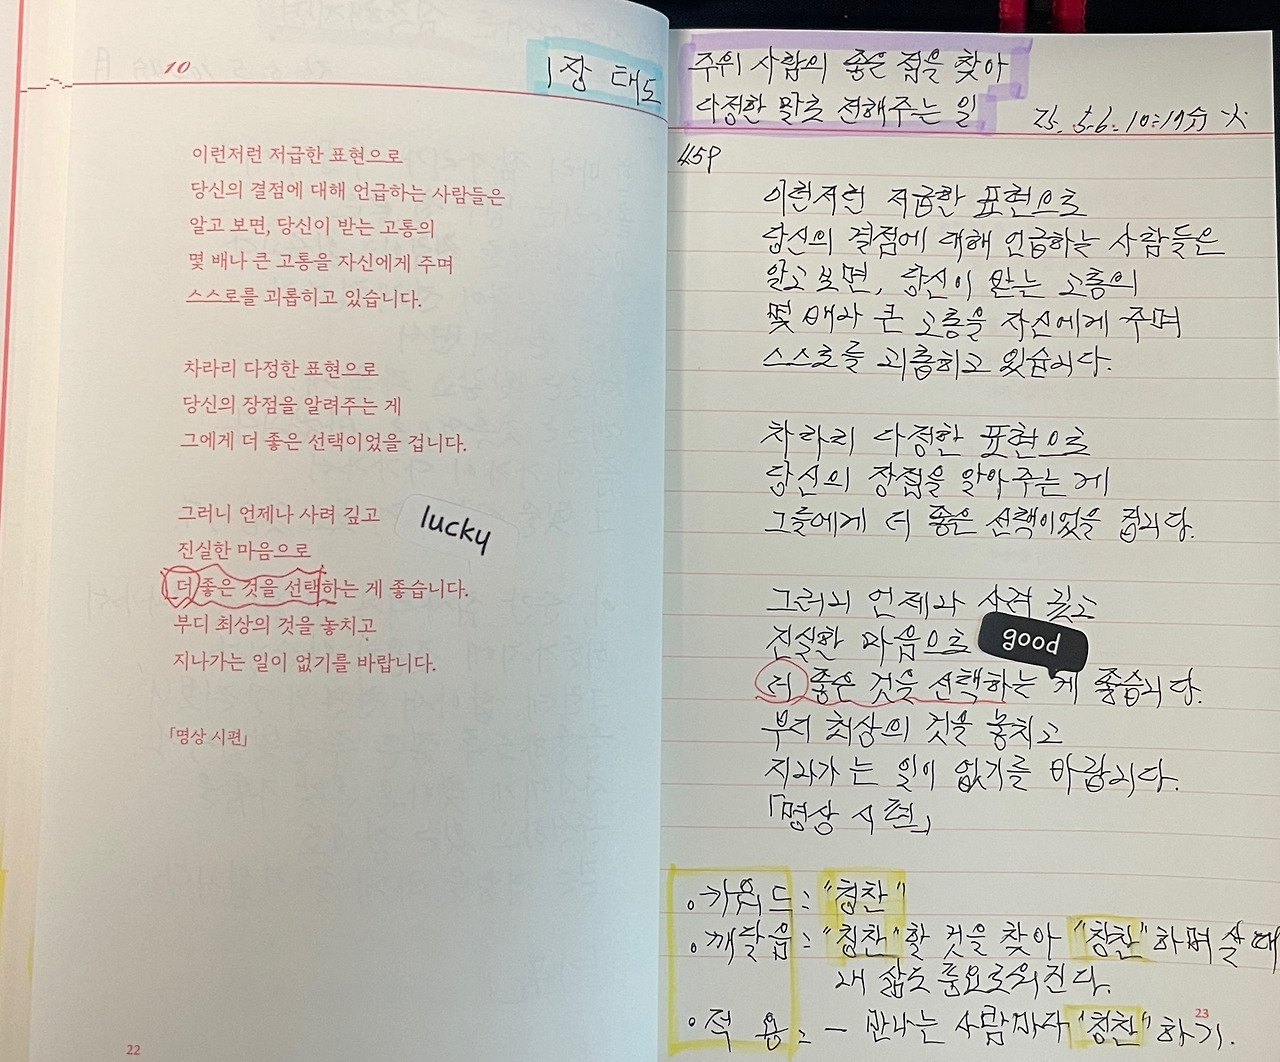 10
1장 태도
이런저런 저급한 표현으로
당신의 결점에 대해 언급하는 사람들은
알고 보면, 당신이 받는 고통의
몇 배나 큰 고통을 자신에게 주며
스스로를 괴롭히고 있습니다.
차라리 다정한 표현으로
당신의 장점을 알려주는 게
그에게 더 좋은 선택이었을 겁니다.
그러니 언제나 사려 깊고
lucky
진실한 마음으로
더 좋은 것을 선택하는 게 좋습니다.
부디 최상의 것을 놓치고
지나가는 일이 없기를 바랍니다.
「명상 시편」
22
주위 사람의 좋은 점을 찾아
다정한 말로 전해주는 일
25. 5.6. 10:17分 火
45P
이런저런 저급한 표현으로
당신의 결점에 대해 언급하는 사람들은
알고 보면, 당신이 받는 고통의
몇 배나 큰 고통을 자신에게 주며
스스로를 괴롭히고 있습니다.
차라리 다정한 표현으로
당신의 장점을 알아주는 게
그들에게 더 좋은 선택이었을 겁니다.
그러니 언제나 사려 깊고
진실한 마음으로
good
더 좋은 것을 선택하는 게 좋습니다.
부디 최상의 것을 놓치고
지나가는 일이 없기를 바랍니다.
「명상 시편」
키워드: "칭찬"
깨달음: "칭찬"할 것을 찾아 "칭찬"하며 살 때
내 삶도 풍요로워진다.
적용: - 만나는 사람마다 "칭찬"하기.
23